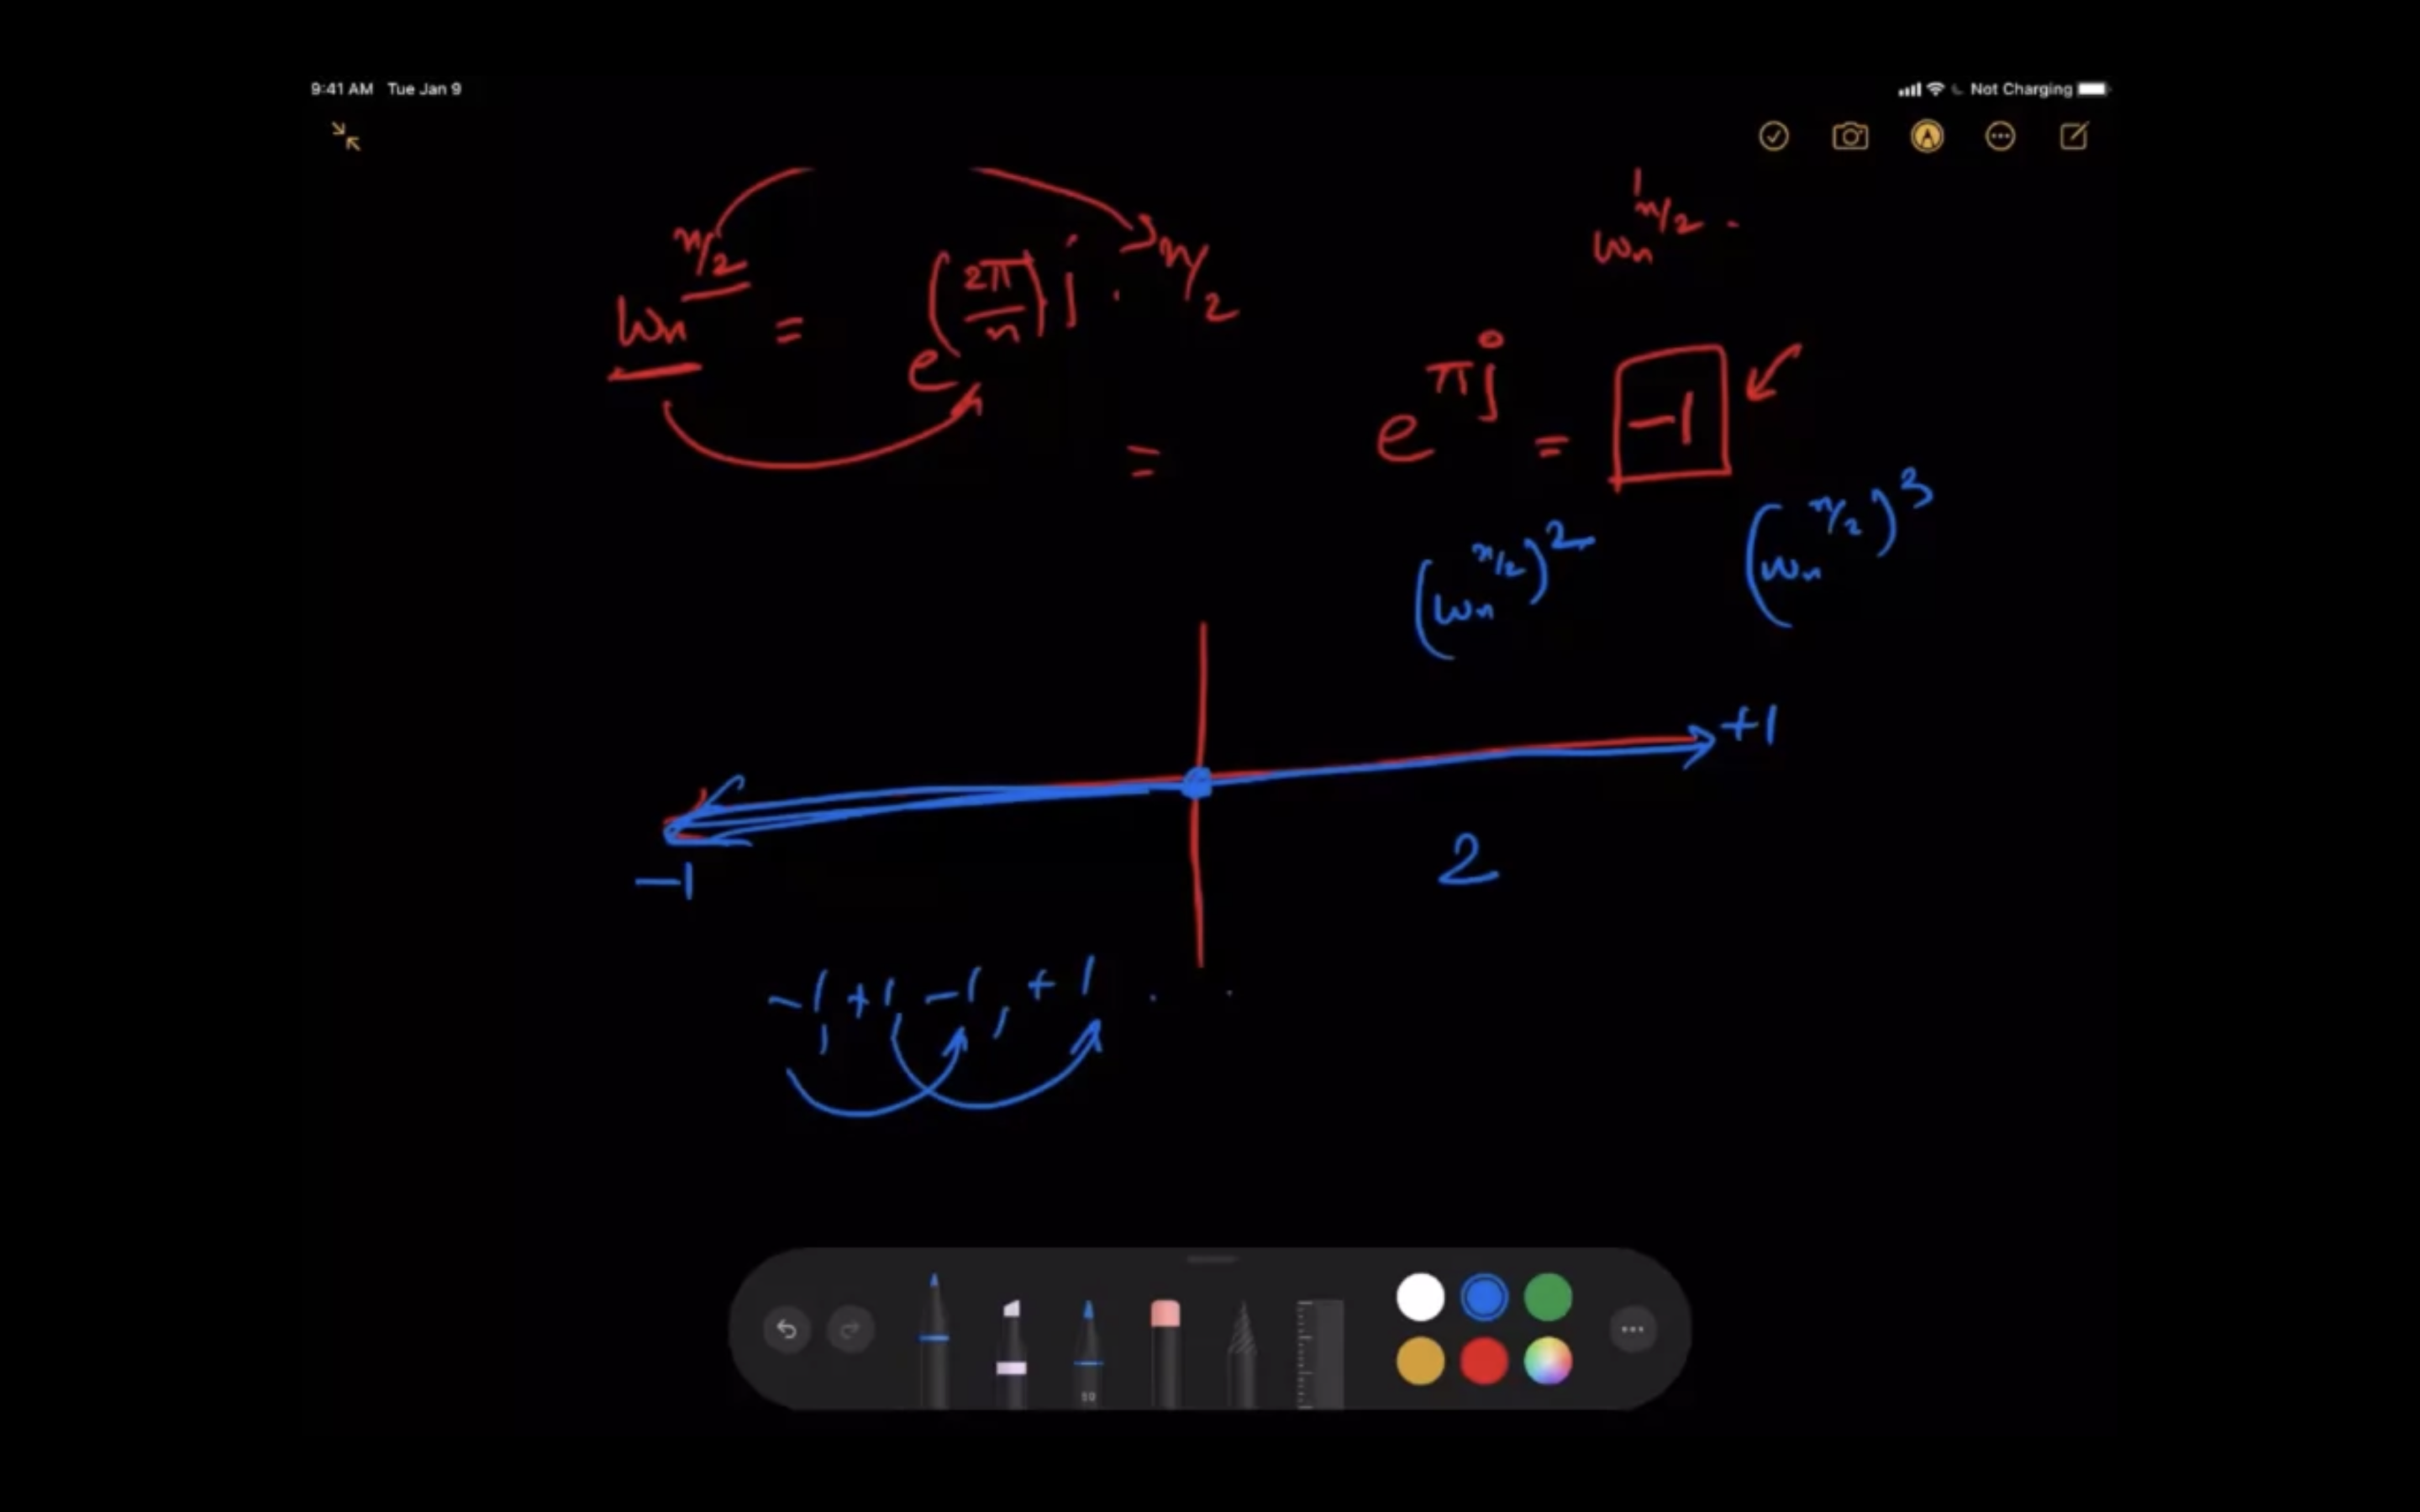 9:41 AM Tue Jan 9 Not Charging
ωn^(n/2) = e^((2π/n)j · n/2)
ωn^(n/2)
= e^(πj) = -1
(ωn^(n/2))^2 (ωn^(n/2))^3
+1
-1 2
-1, +1, -1, +1 . .
50